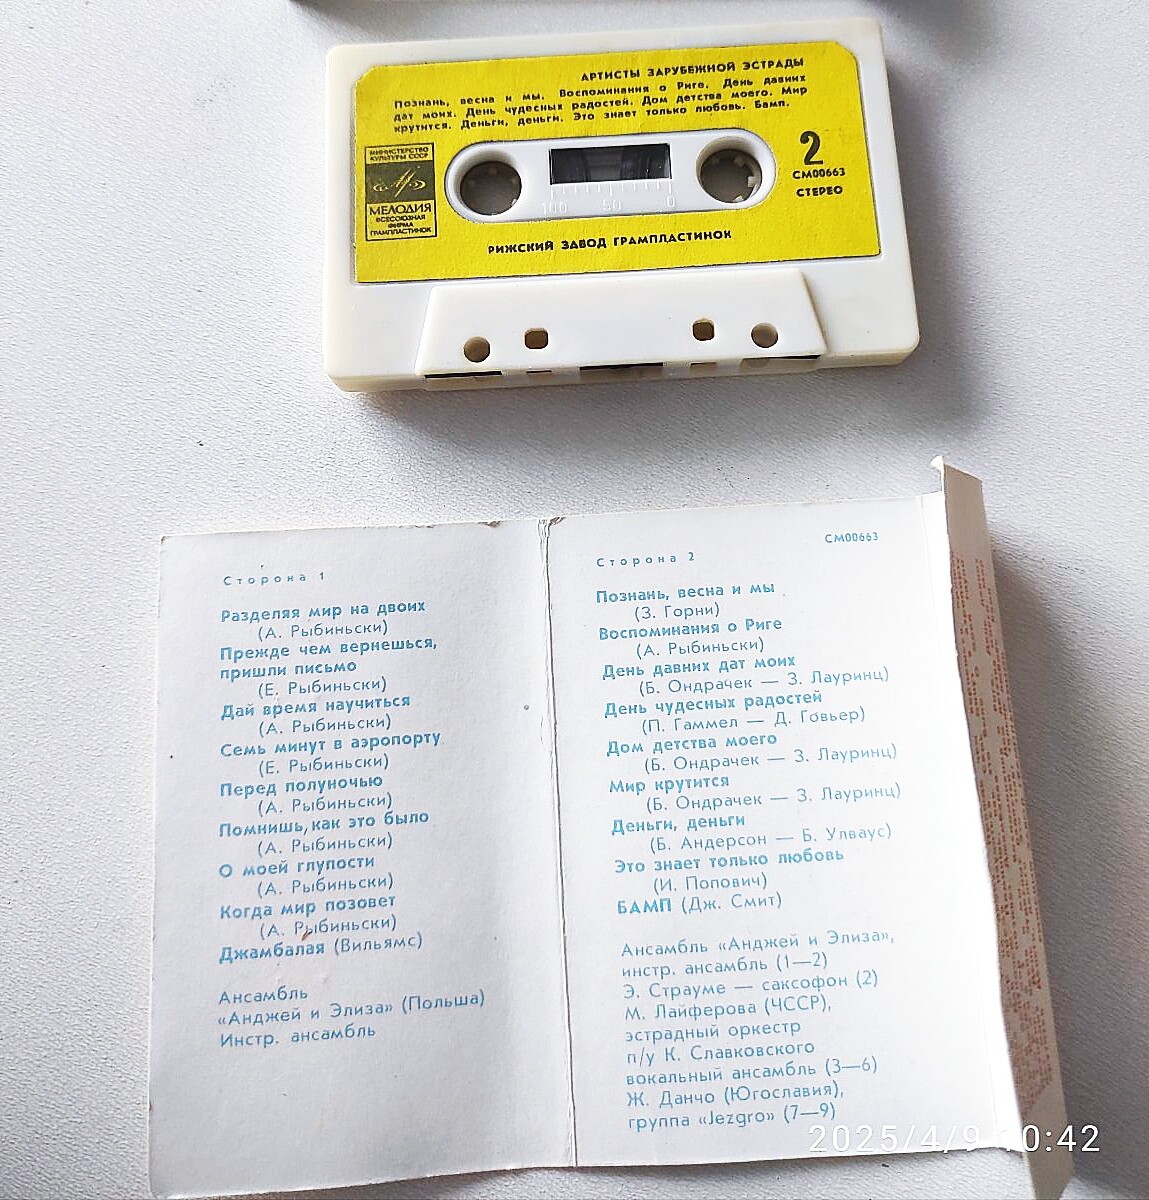 АРТИСТЫ ЗАРУБЕЖНОЙ ЭСТРАДЫ
Познань, весна и мы. Воспоминания о Риге. День давних
дат моих. День чудесных радостей. Дом детства моего. Мир
крутится. Деньги, деньги. Это знает только любовь. Бамп.
МИНИСТЕРСТВО
КУЛЬТУРЫ СССР
МЕЛОДИЯ
ВСЕСОЮЗНАЯ
ФИРМА
ГРАМПЛАСТИНОК
2
СМ00663
СТЕРЕО
100 50 0
РИЖСКИЙ ЗАВОД ГРАМПЛАСТИНОК
Сторона 1
Разделяя мир на двоих
(А. Рыбиньски)
Прежде чем вернешься,
пришли письмо
(Е. Рыбиньски)
Дай время научиться
(А. Рыбиньски)
Семь минут в аэропорту
(Е. Рыбиньски)
Перед полуночью
(А. Рыбиньски)
Помнишь, как это было
(А. Рыбиньски)
О моей глупости
(А. Рыбиньски)
Когда мир позовет
(А. Рыбиньски)
Джамбалая (Вильямс)
Ансамбль
«Анджей и Элиза» (Польша)
Инстр. ансамбль
СМ00663
Сторона 2
Познань, весна и мы
(З. Горни)
Воспоминания о Риге
(А. Рыбиньски)
День давних дат моих
(Б. Ондрачек — З. Лауринц)
День чудесных радостей
(П. Гаммел — Д. Говьер)
Дом детства моего
(Б. Ондрачек — З. Лауринц)
Мир крутится
(Б. Ондрачек — З. Лауринц)
Деньги, деньги
(Б. Андерсон — Б. Улваус)
Это знает только любовь
(И. Попович)
БАМП (Дж. Смит)
Ансамбль «Анджей и Элиза»,
инстр. ансамбль (1—2)
Э. Страуме — саксофон (2)
М. Лайферова (ЧССР),
эстрадный оркестр
п/у К. Славковского
вокальный ансамбль (3—6)
Ж. Данчо (Югославия),
группа «Jezgro» (7—9)
2025/4/9 10:42